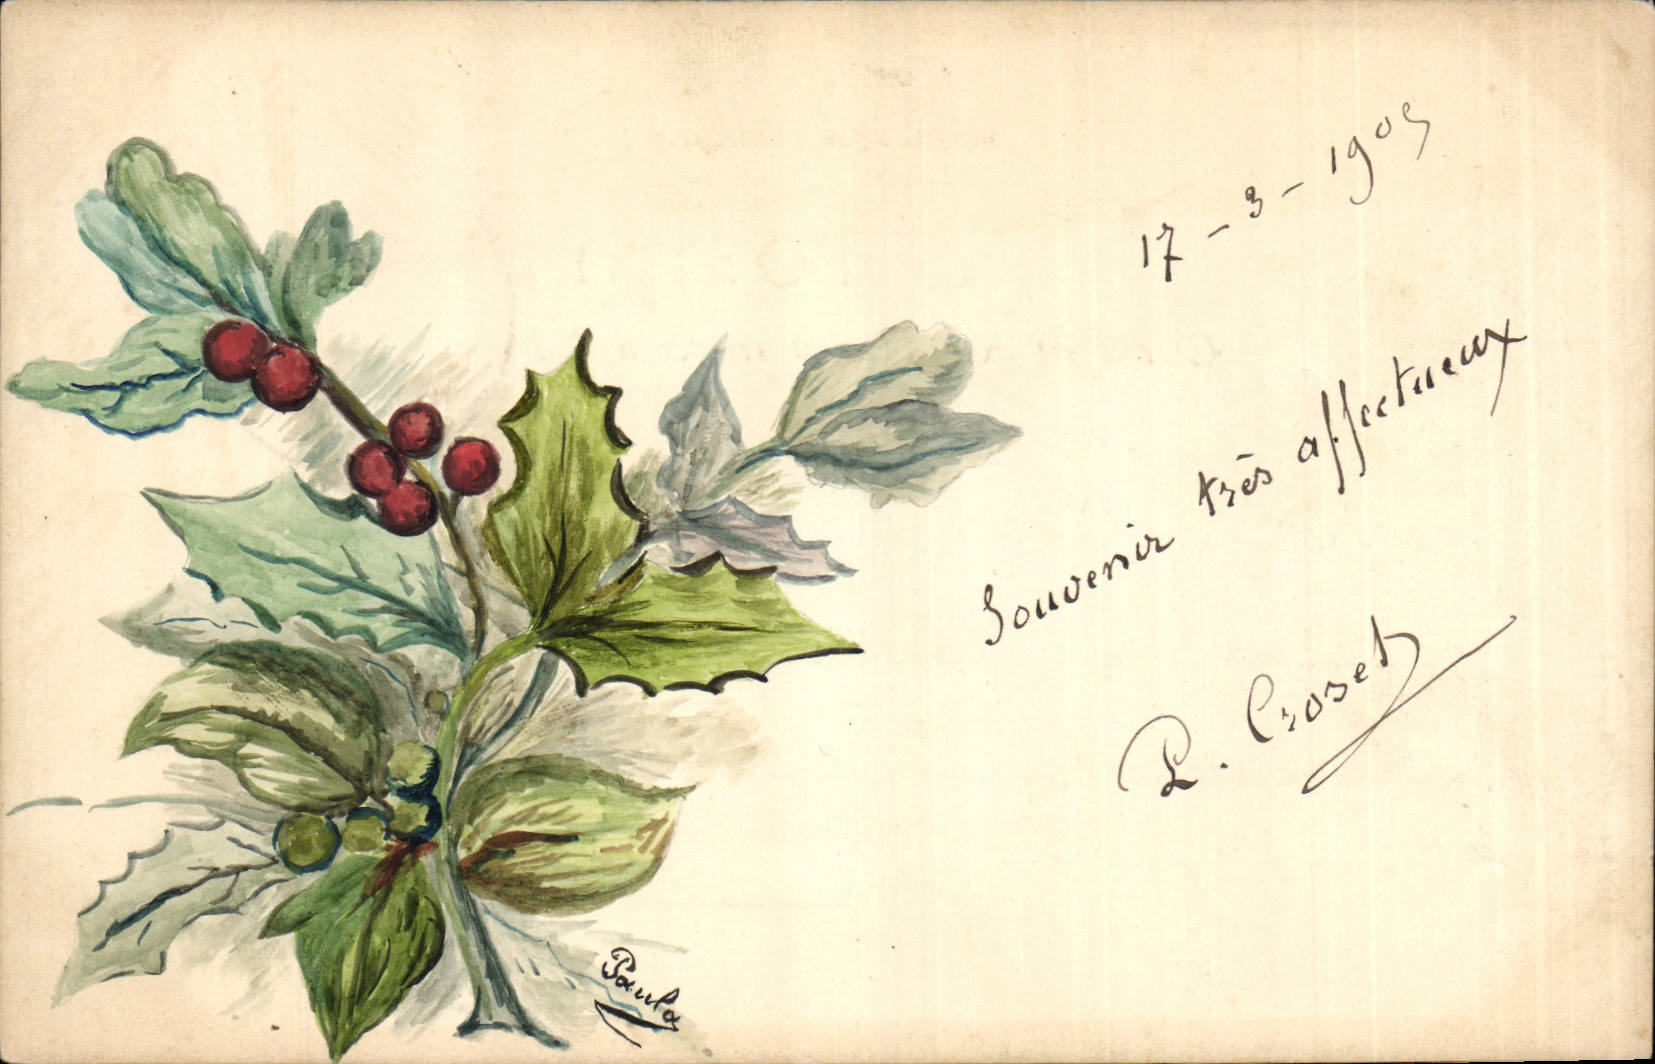 17-3-1905
Souvenir très affectueux
P. Croset
Paula